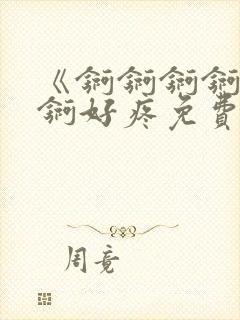 《锕锕锕锕
锕好疼免費
周竟